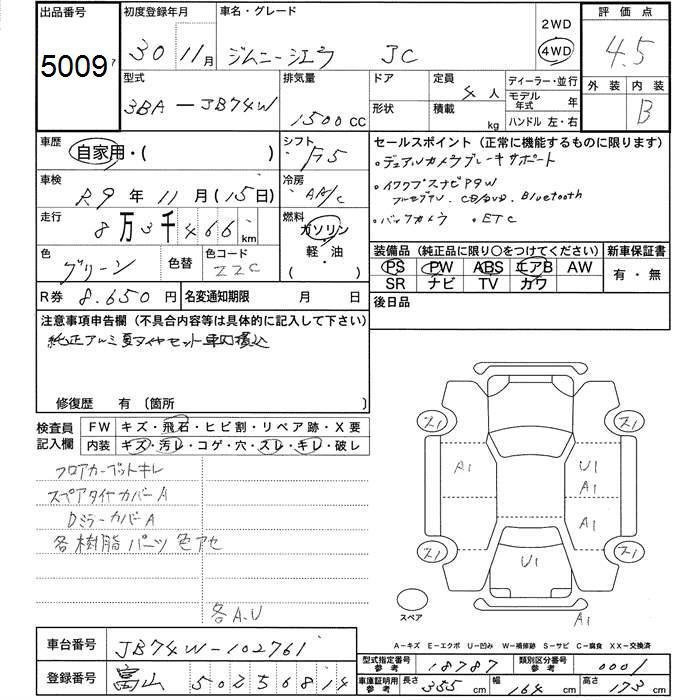 出品番号 初度登録年月 車名・グレード 2WD 評価点
5009 30 11月 ジムニーシエラ JC 4WD 4.5
型式 排気量 ドア 定員 4人 ディーラー・並行 外装 内装
3BA-JB74W 1500cc 形状 積載 kg モデル年式 年 B
ハンドル 左・右
車歴 自家用・( ) シフト F5 セールスポイント(正常に機能するものに限ります)
・デュアルカメラブレーキサポート
車検 R9年11月(15日) 冷房 AA/C ・イクリプスナビP9W
フルセグTV、CD/DVD、Bluetooth
走行 8万3千466km 燃料 ガソリン 軽・油 ・( ) ・バックカメラ ・ETC
色 グリーン 色替 色コード ZZC
装備品(純正品に限り○をつけてください) 新車保証書
PS PW ABS エアB AW 有・無
SR ナビ TV カワ
R券 8.650円 名変通知期限 月 日 後日品
注意事項申告欄(不具合内容等は具体的に記入して下さい)
純正アルミ夏タイヤセット車内積込
修復歴 有〔箇所 〕
検査員記入欄 FW キズ・飛石・ヒビ割・リペア跡・X要
内装 キズ・汚レ・コゲ・穴・スレ・キレ・破レ
フロアカーペットキレ
スペアタイヤカバーA
DミラーカバーA
各樹脂パーツ色アセ
各A.U
ス1 ス1
A1 U1
A1
A1
ス1 U1 ス1
スペア A1
A-キズ E-エクボ U-凹み W-補修跡 S-サビ C-腐食 XX-交換済
車台番号 JB74W-102761 型式指定番号 参考 18787 類別区分番号 参考 0001
登録番号 富山 502 5 6814 車庫証明用参考 長さ 355cm 幅 164cm 高さ 173cm